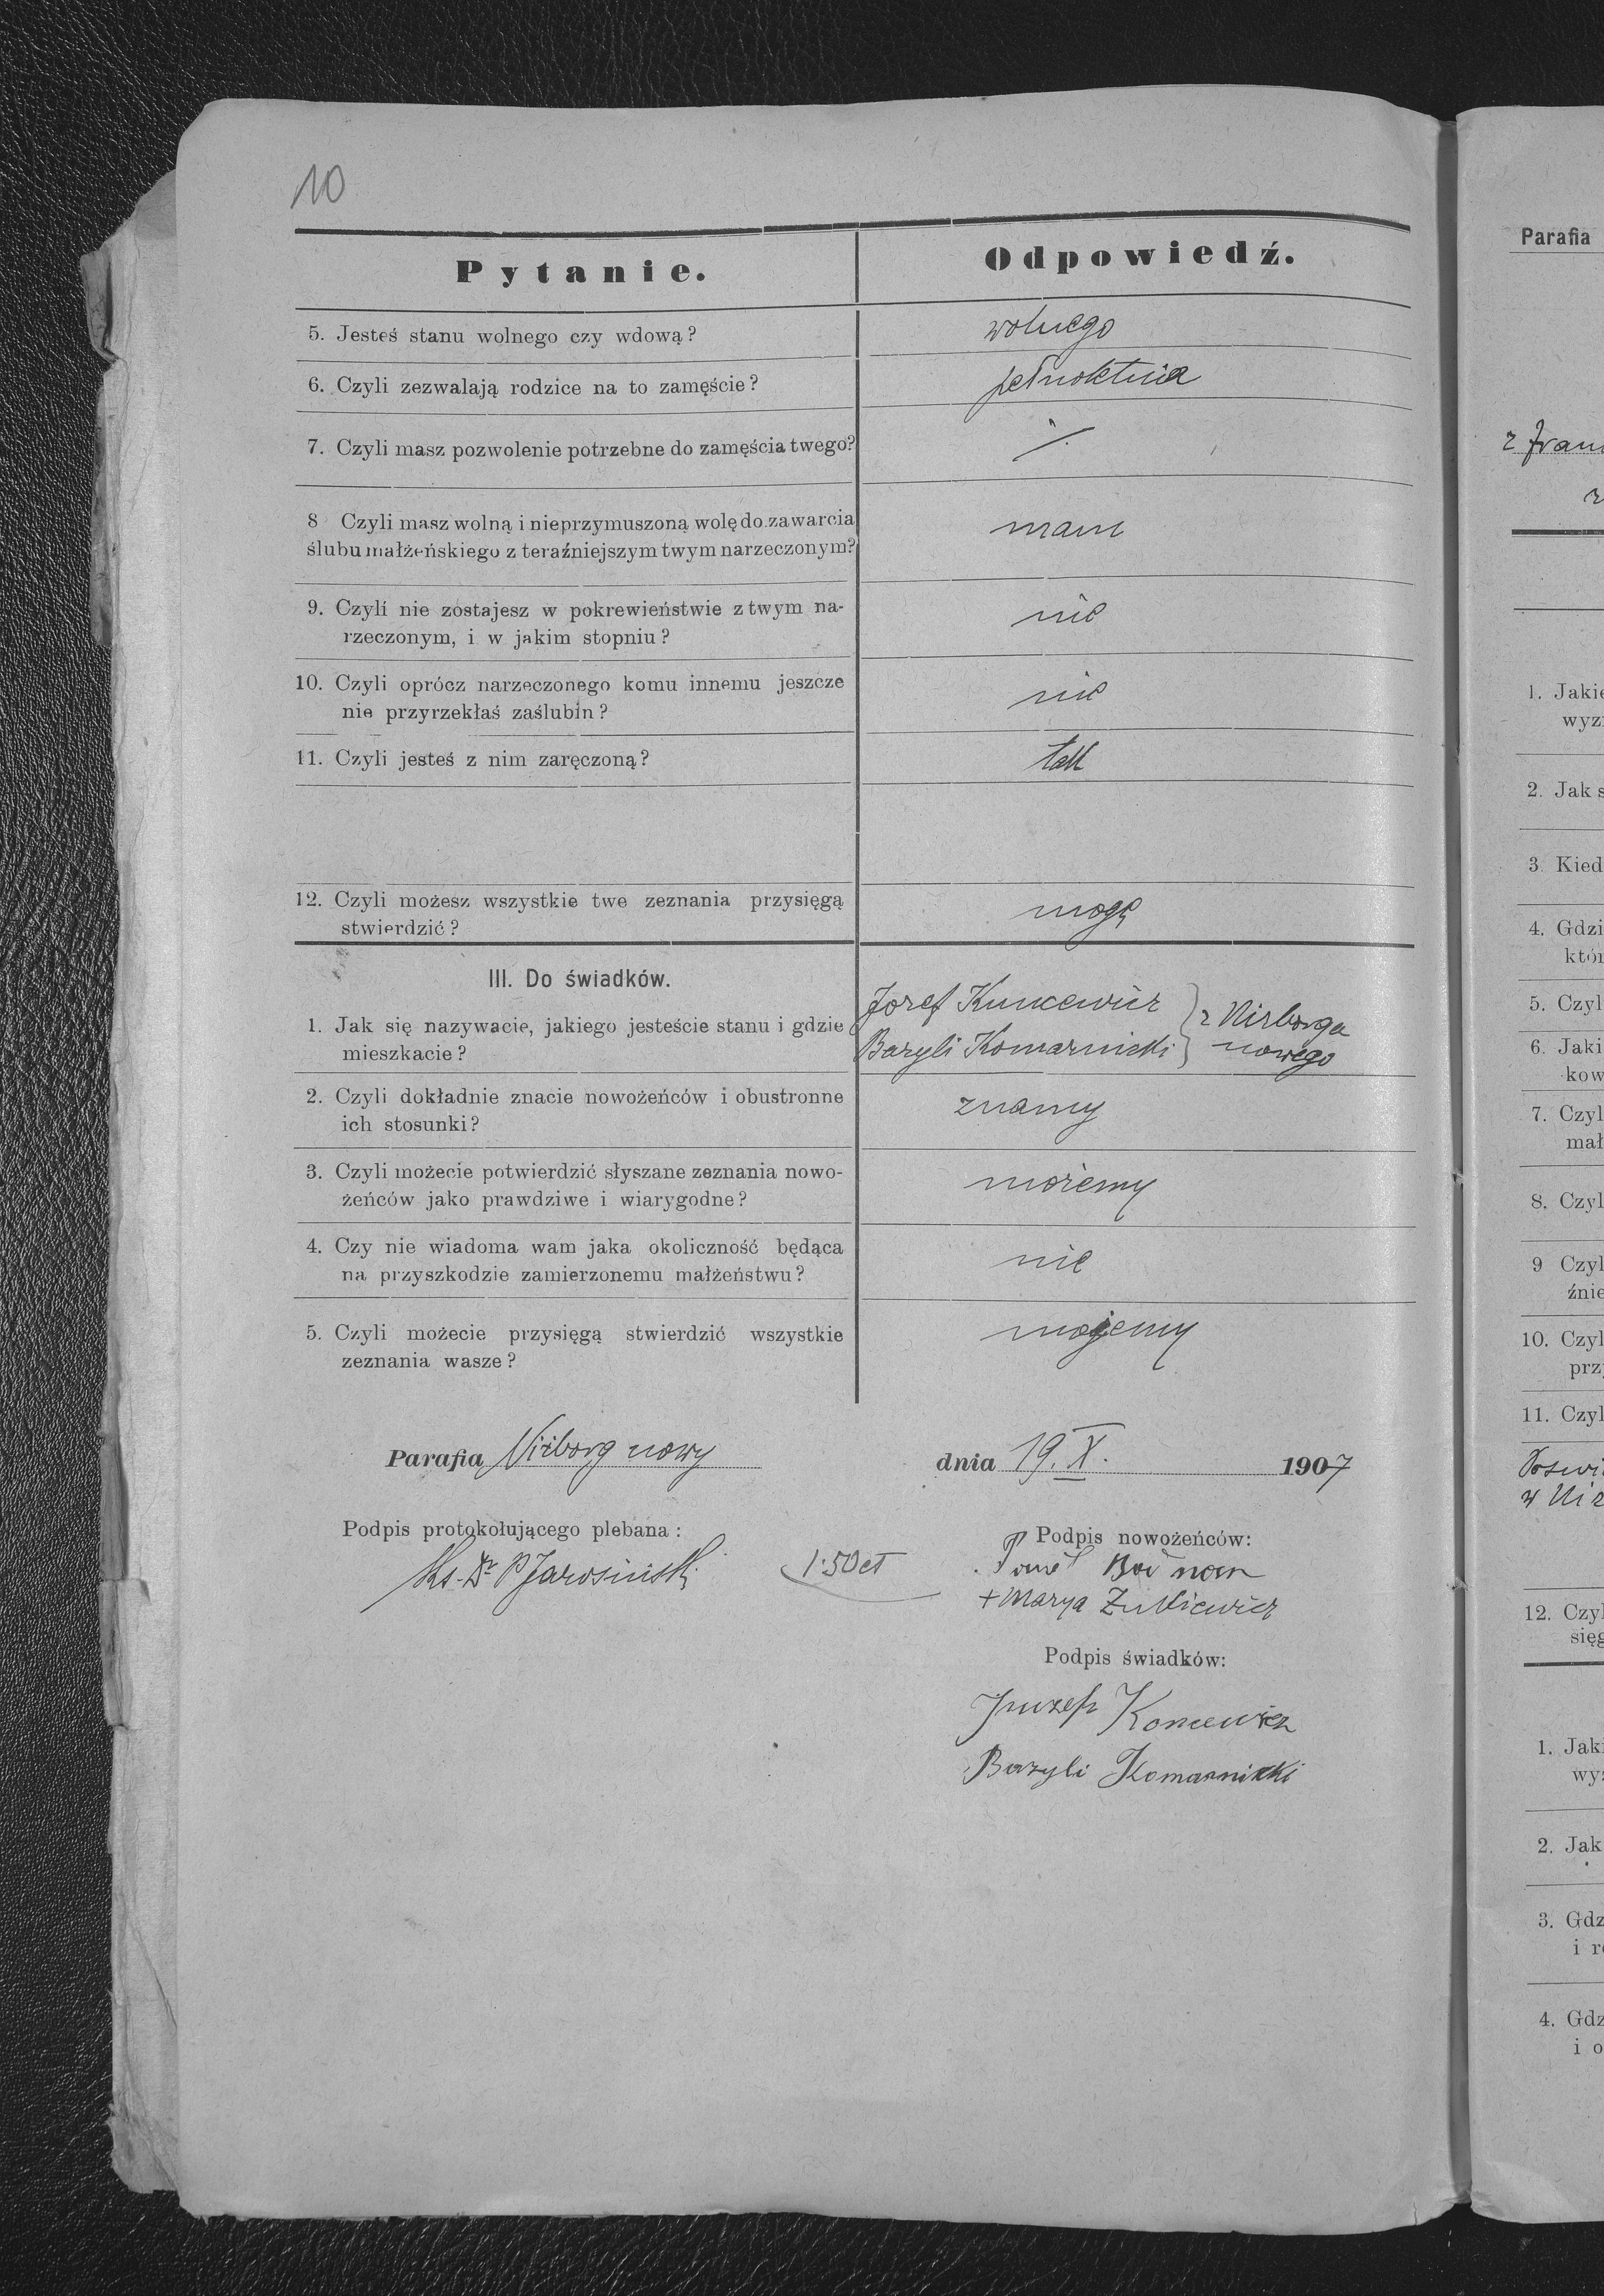 10
Pytanie. Odpowiedź.
5. Jesteś stanu wolnego czy wdową? wolnego
6. Czyli zezwalają rodzice na to zamęście? pełnoletnia
7. Czyli masz pozwolenie potrzebne do zamęścia twego? ·/.
8 Czyli masz wolną i nieprzymuszoną wolę do zawarcia
ślubu małżeńskiego z teraźniejszym twym narzeczonym? mam
9. Czyli nie zostajesz w pokrewieństwie z twym na-
rzeczonym, i w jakim stopniu? nie
10. Czyli oprócz narzeczonego komu innemu jeszcze
nie przyrzekłaś zaślubin? nie
11. Czyli jesteś z nim zaręczoną? tak
12. Czyli możesz wszystkie twe zeznania przysięgą
stwierdzić? mogę
III. Do świadków.
1. Jak się nazywacie, jakiego jesteście stanu i gdzie
mieszkacie?
Józef Kuncewicz } z Niżborga
Bazyli Komarnicki } nowego
2. Czyli dokładnie znacie nowożeńców i obustronne
ich stosunki? znamy
3. Czyli możecie potwierdzić słyszane zeznania nowo-
żeńców jako prawdziwe i wiarygodne? możemy
4. Czy nie wiadoma wam jaka okoliczność będąca
na przyszkodzie zamierzonemu małżeństwu? nie
5. Czyli możecie przysięgą stwierdzić wszystkie
zeznania wasze? możemy
Parafia Niżborg nowy dnia 19. X. 1907
Podpis protokołującego plebana: Podpis nowożeńców:
Ks. Dr P Jarosiński 1·50 ct
+ Marya Żutkiewicz
Podpis świadków:
Juzef Koncewicz
Bazyli Komarnicki
Parafia
z Fran
1. Jakie
wyz
2. Jak s
3. Kied
4. Gdzi
któr
5. Czyl
6. Jaki
kow
7. Czyl
mał
8. Czyl
9 Czyl
źnie
10. Czyl
prz
11. Czyl
w Niż
12. Czyl
sięg
1. Jaki
wyz
2. Jak
3. Gdz
i r
4. Gdz
i o